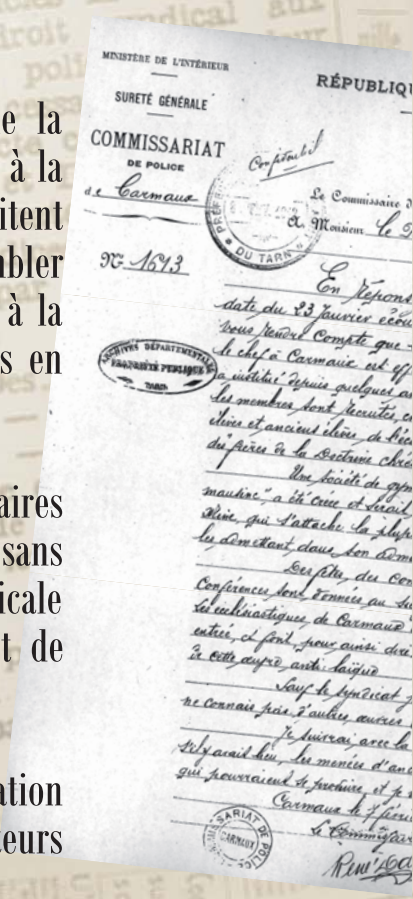 e la
à la
itent
nbler
à la
s en
aires
sans
icale
t de
ation
teurs
MINISTÈRE DE L'INTÉRIEUR
SURETÉ GÉNÉRALE
COMMISSARIAT
DE POLICE
de Carmaux
Nº 1613
ARCHIVES DÉPARTEMENTALES
PROPRIÉTÉ PUBLIQUE
TARN
RÉPUBLIQU
Confidentiel
DU TARN
Le Commissaire d
A Monsieur le
En Répons
date du 23 Janvier écou
vous rendre Compte que
le chef à Carmaux est eff
a institué depuis quelques an
les membres sont recrutés
élèves et anciens élèves de l'éco
des frères de la Doctrine chré
Une Société de gym
mautine" a été créée et serait
qui s'attache la plup
les admettant dans son
Des fêtes, des
Conférences sont données au
Les ecclésiastiques de Carmaux
entrée, et font, pour ainsi dire
de cette œuvre anti-laïque
Sauf le syndicat
ne connais pas d'autres œuvres
Je suivrai avec la
s'il y avait lieu, les menées d'an
qui pourraient se produire, et je
Carmaux le 7
Le Commissaire
René
COMMISSARIAT DE POLICE
CARMAUX